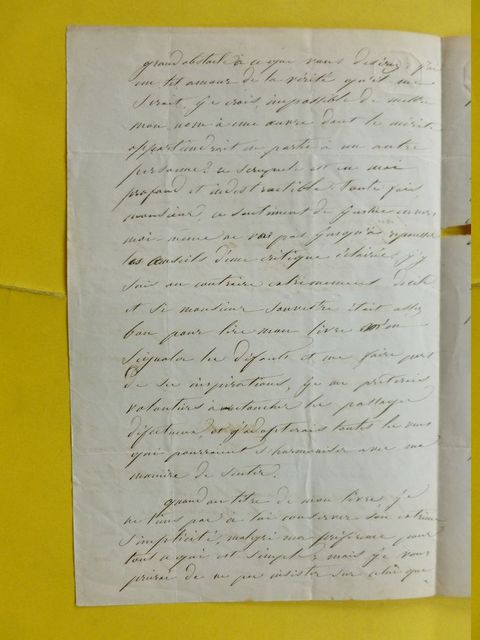 grand obstacle à ce que vous desirez. j'ai
un tel amour de la vérité qu'il me
serait, je crois, impossible de mettre
mon nom à une œuvre dont le mérite
appartiendrait en partie à un autre
personne? ce scrupule est en moi
profond et indestructible. toute fois
monsieur, ce sentiment de justice envers
moi-même ne va pas jusqu'à repousser
les conseils d'une critique éclairée, j'y
suis au contraire extrêmement docile
et si monsieur Souvestre était assez
bon pour lire mon livre m'en
signaler les défauts et me faire part
de ses inspirations, je me prêterais
volontiers à retoucher les passages
défectueux, et j'adopterais toutes les vues
qui pourraient s'harmoniser avec ma
manière de sentir.
quand au titre de mon livres je
ne tiens pas à lui conserver son extrême
simplicité, malgré ma préférence pour
tout ce qui est simple, mais je vous
prierai de ne pas insister sur celui que